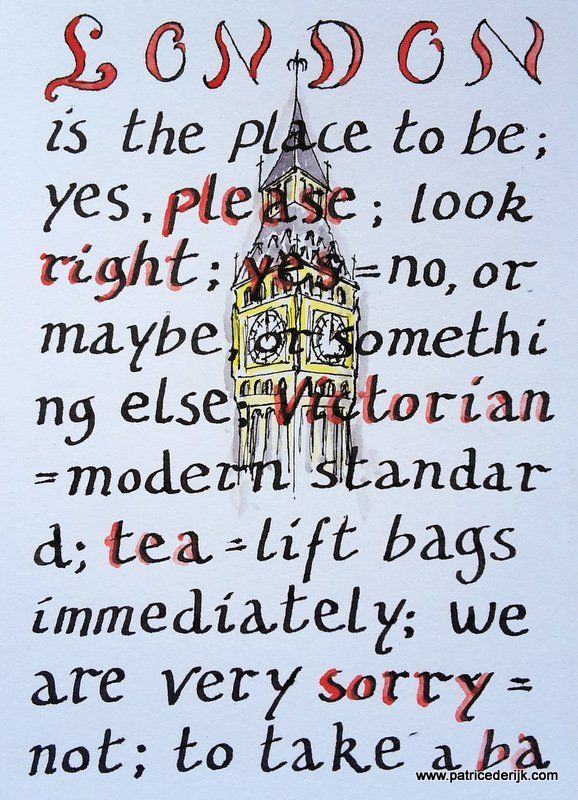 LONDON
is the place to be;
yes, please; look
right; yes=no, or
maybe, or somethi
ng else; Victorian
=modern standar
d; tea=lift bags
immediately; we
are very sorry=
not; to take a ba
www.patricederijk.com